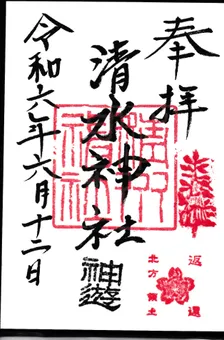 奉拝
清水神社
神遊
令和六年六月十二日
返還
北方領土